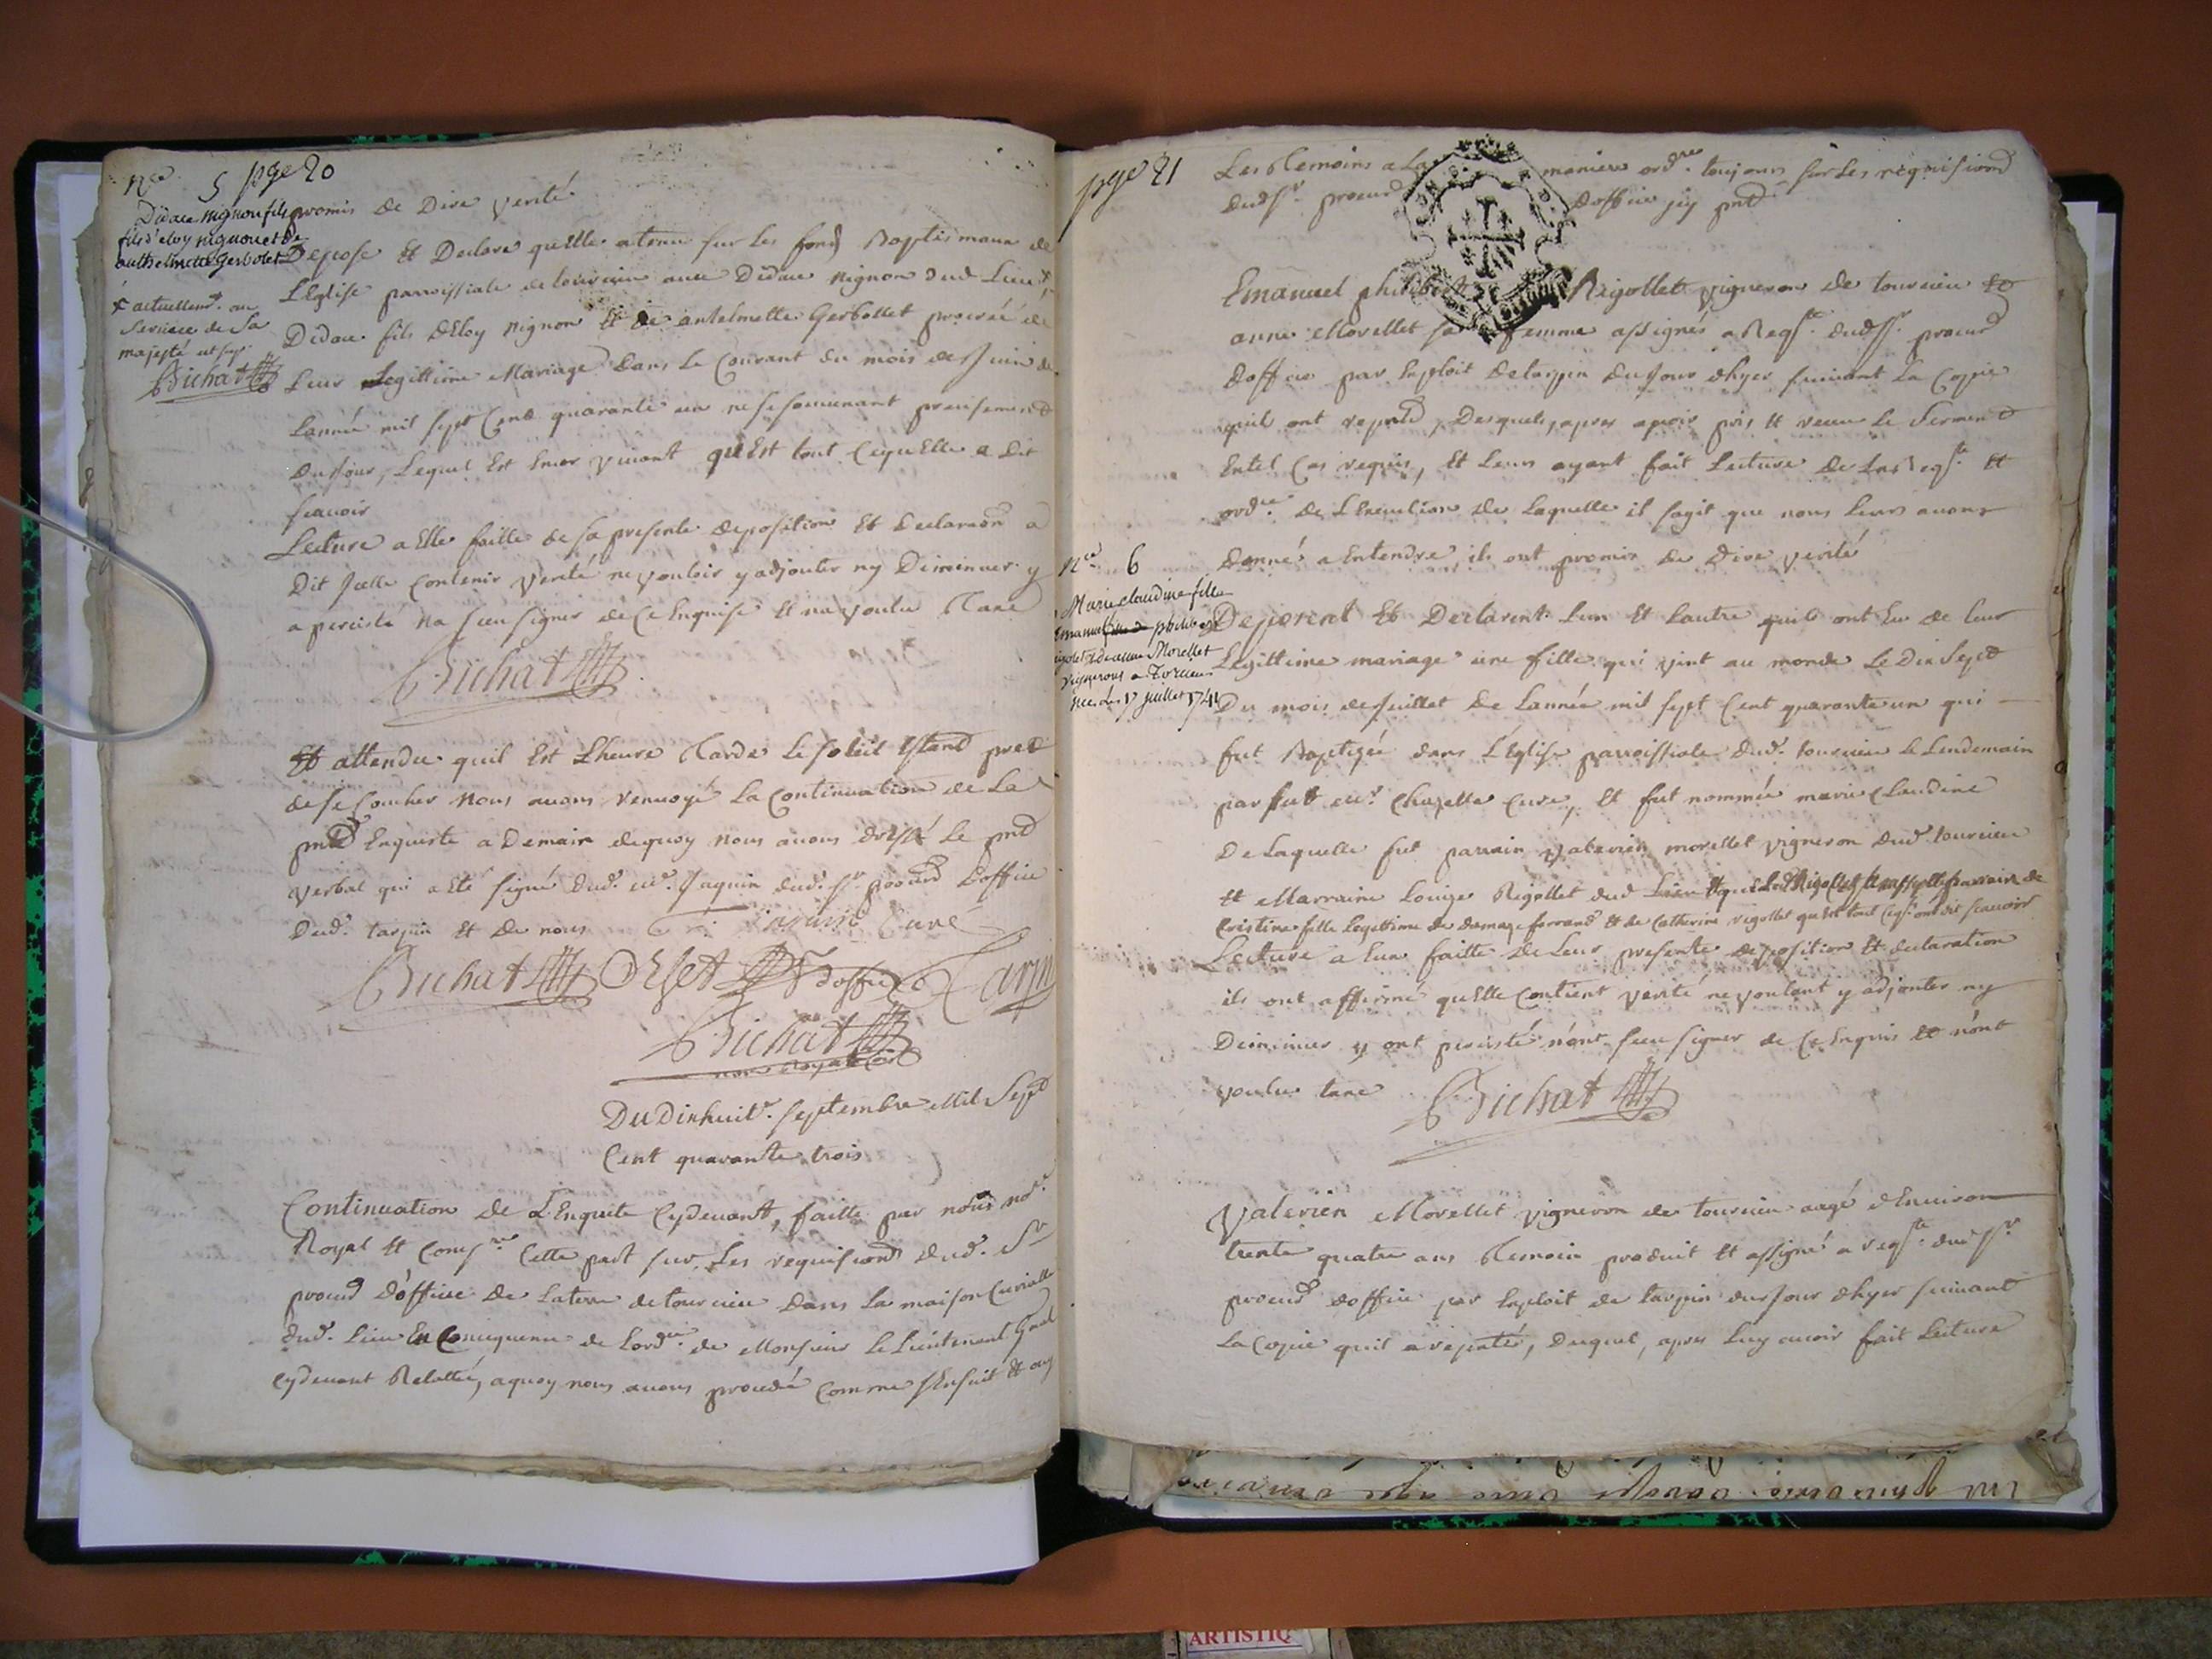 nce 5 pge 20
Didace Mignon fils
fils d'eloy mignon et de
anthelmette Gerbolet
x actuellemt. au
service de Sa
majesté
Bichat
promis de Dire verité
Depose Et Declare quElle a tenu sur Les fonds Baptismaux de
LEglise parroissiale de tourcieu avec Didace Mignon dud Lieu x
Didace fils DEloy Mignon Et de antelmette Gerbollet procréé de
Leur Legittime Mariage Dans Le Courant du mois de Juin de
Lannée mil sept Cent quarante un ne se souvenant precisement
du Jour, Lequel Est Encor vivant quEst tout CequElle a dit
scavoir
Lecture a Elle faitte de sa presente deposition Et Declaraon a
Dit Jcelle Contenir verité ne vouloir y adjouter ny Diminuer y
a percisté Na sceu signer de Ce Enquise Et na voulu Taxe
Bichat
Et attendu quil Est Lheure Tarde Le soleil Estant prest
de se Coucher Nous avons renvoyé La Continuation de La
pnte Enqueste a Demain dequoy Nous avons dressé Le pnt
verbal qui a Eté signé dud. mr. Jaquin dud. sr. procur Doffice
Dud. tarpin Et de nous Jaquin Curé
Bichat Doffice Tarpin
Bichat
nore Royal
Du Dixhuitr. septembre Mil Sept
Cent quarante trois
Continuation de LEnquete Cydevant, faitte par nous nore.
Royal Et Comsre Cette part sur Les requisions dud. Sr
procur Doffice De La terre de tourcieu Dans La maison Curialle
dud. Lieu En Consequence de Lordce. de Monsieur Le Lieutenant Gnal
cydevant Relattée, aquoy nous avons procedé Comme sEnsuit Et ouy
pge 21
Les Temoins a La maniere ordre. toujours sur Les requisions
dud sr. procur Doffice j'y pnt
Emanuel philibert Rigollet vigneron de tourcieu Et
anne Morellet sa femme assignés a Reqte. dud sr. procur
Doffice par Exploit de tarpin du Jour dhyer suivant La Coppie
quils ont repnté, Desquels, apres avoir pris Et receu Le Serment
En tel Cas requis, Et Leurs ayant fait Lecture de La Reqte. Et
ordce. de LExecution de Laquelle il sagit que nous Leurs avons
donné a Entendre, ils ont promis de Dire verité
nce 6
Marie claudine fille
Emanuel philibert
rigolet & de anne Morellet
vignerons a Torcieu
née Le 17 juillet 1741
Deposent Et Declarent Lun Et Lautre quils ont Eu de Leur
Legittime mariage une fille qui vint au monde Le Dix Sept
Du mois de Juillet de Lannée mil sept Cent quarante un qui
fut Baptizée dans LEglise parroissiale dud. tourcieu Le Lendemain
par feu mr. Chapelle Curé, Et fut nommée marie Claudine
De Laquelle fut parrain Valerien morellet vigneron dud. tourcieu
Et Marraine Louise Rigollet dud Lieu
Cristine fille Legittime de ferrand Et de Catherine rigollet quEst tout Ceqs. ont dit scavoir
Lecture a Eux faitte de Leur presente deposition Et declaration
ils ont affirmé quElle Contient verité ne voulant y adjouter ny
Diminuer y ont percisté n'ont sceu signer de Ce Enquis Et n'ont
voulu taxe Bichat
Valerien Morellet vigneron de tourcieu aagé dEnviron
trente quatre ans Temoin produit Et assigné a reqte. dud sr.
procur Doffice par Exploit de tarpin du Jour dhyer suivant
La Copie quil a repnté, Duquel, apres Luy avoir fait Lecture
ARTISTIQ